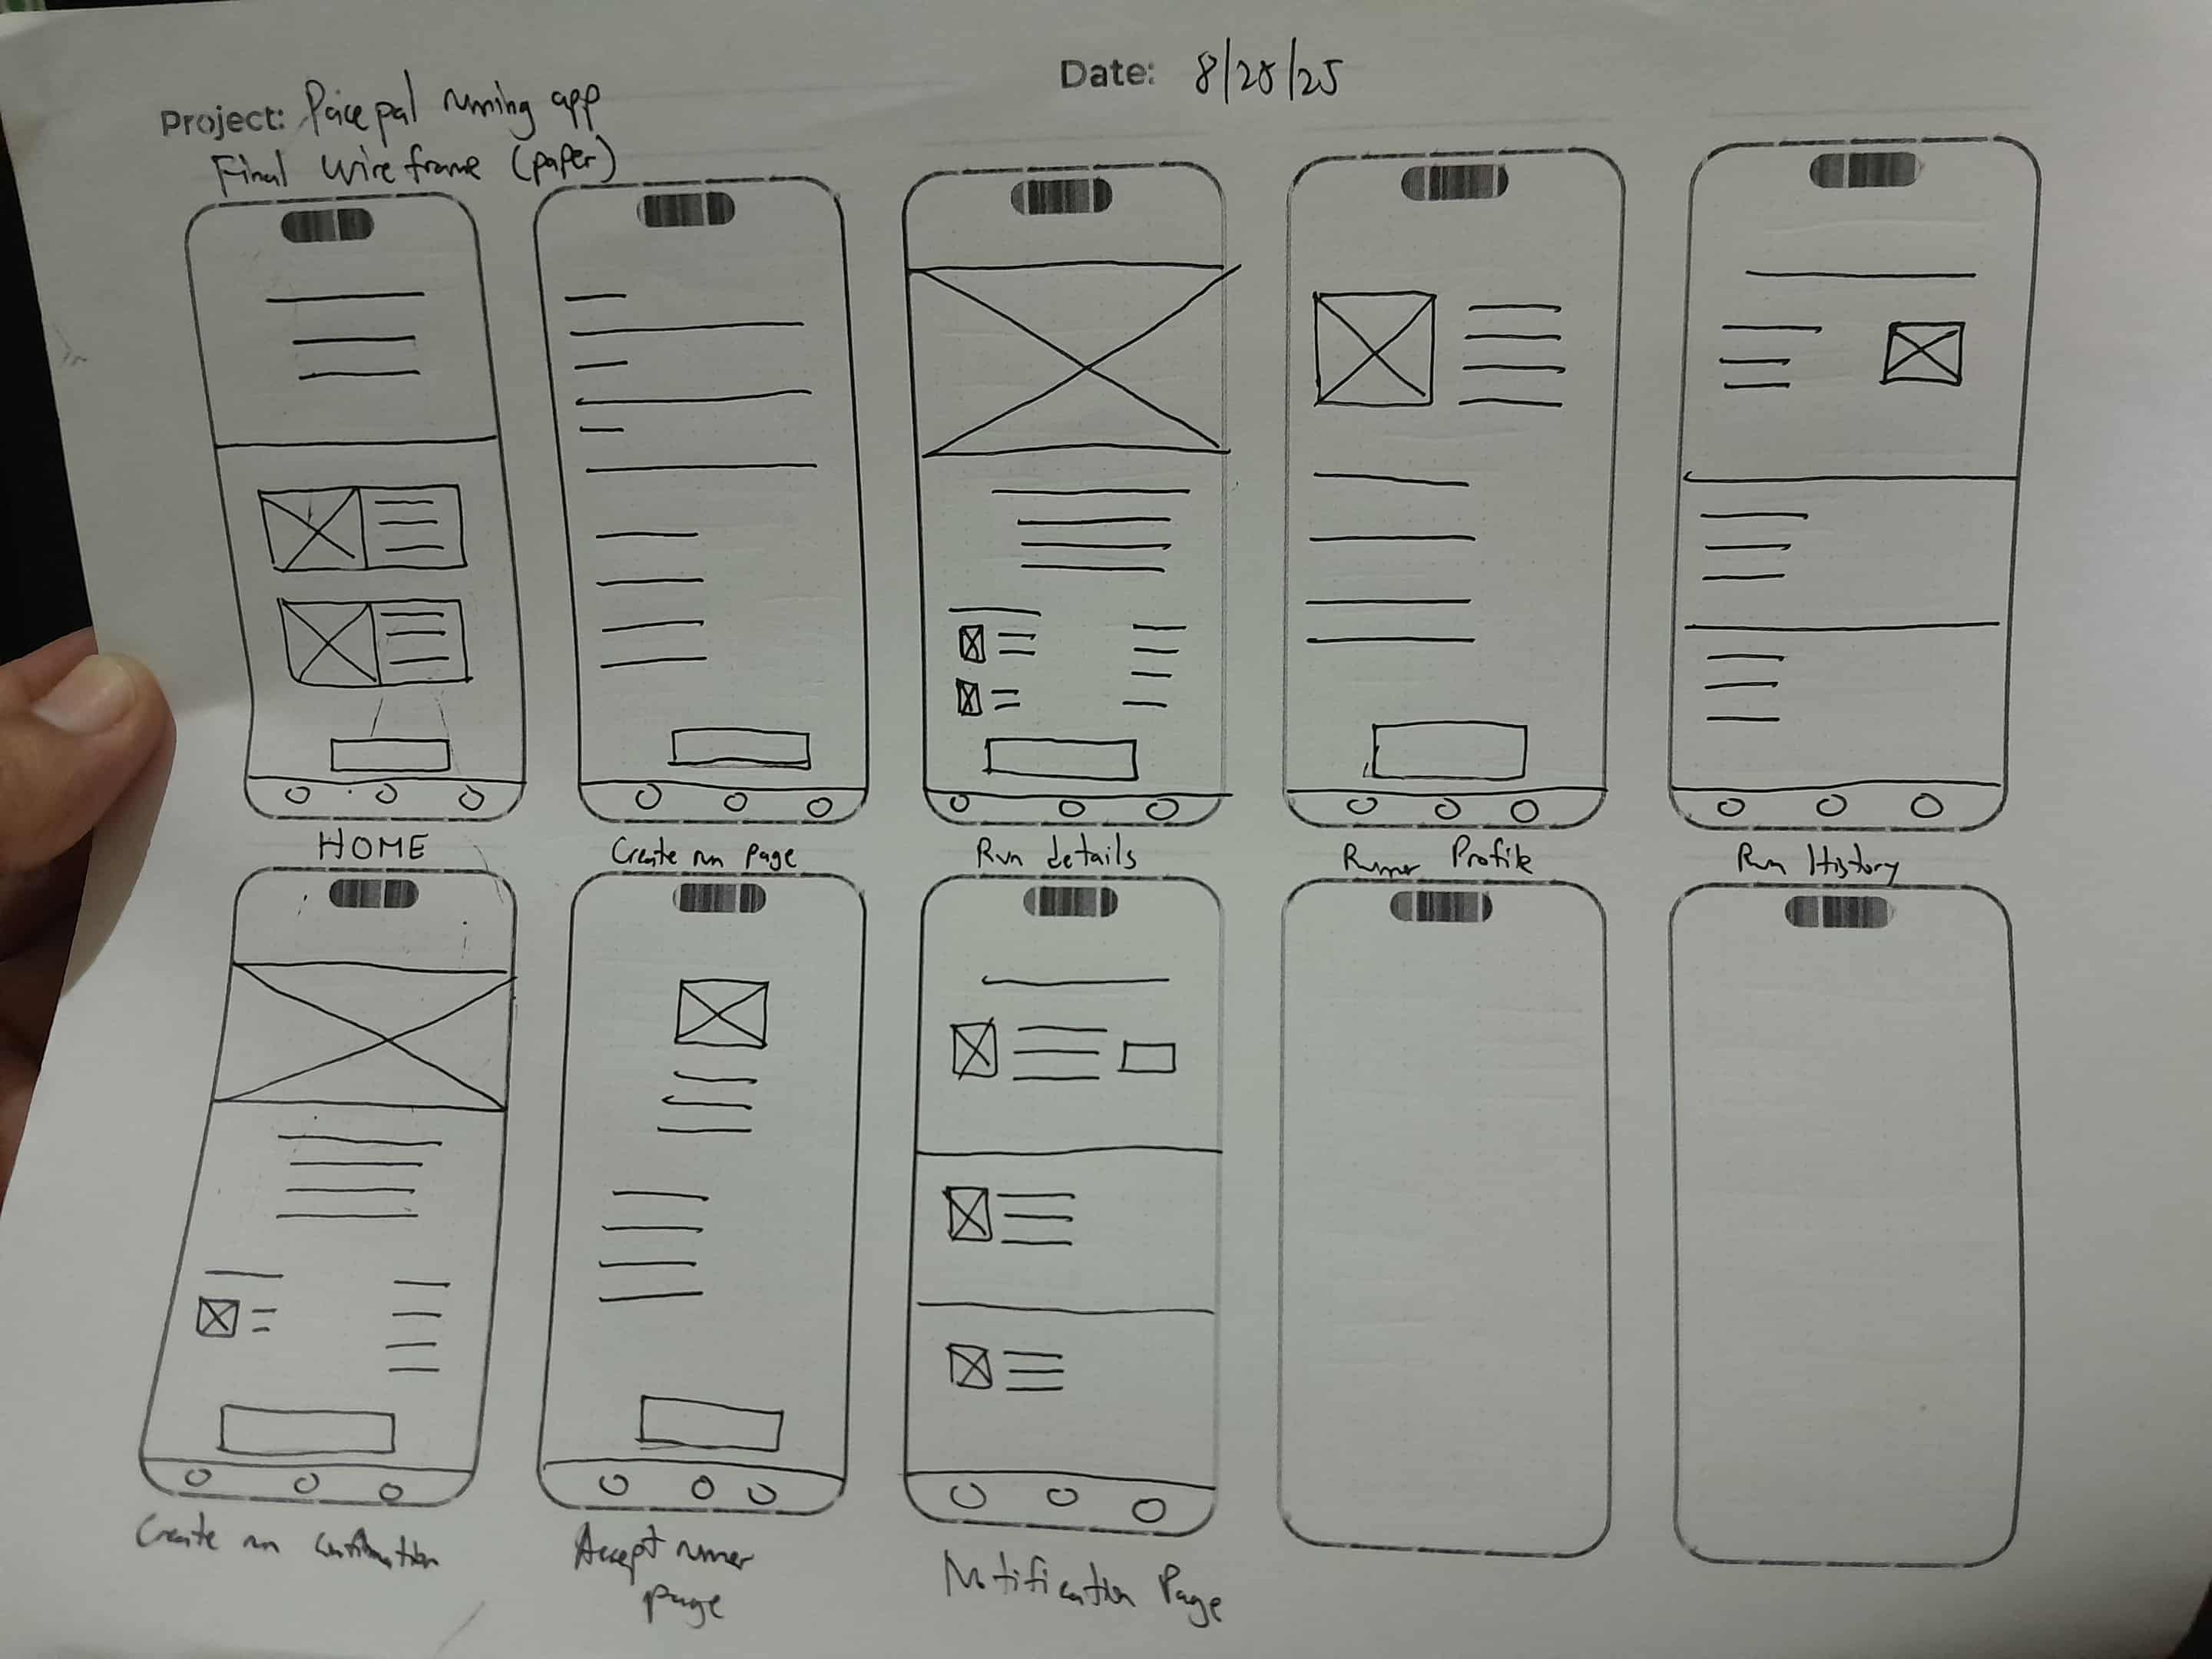 Project: Pace pal running app
Final Wireframe (paper)
Date: 8/28/25
HOME
Create run page
Run details
Runner Profile
Run History
Create run confirmation
Accept runner
page
Notification Page